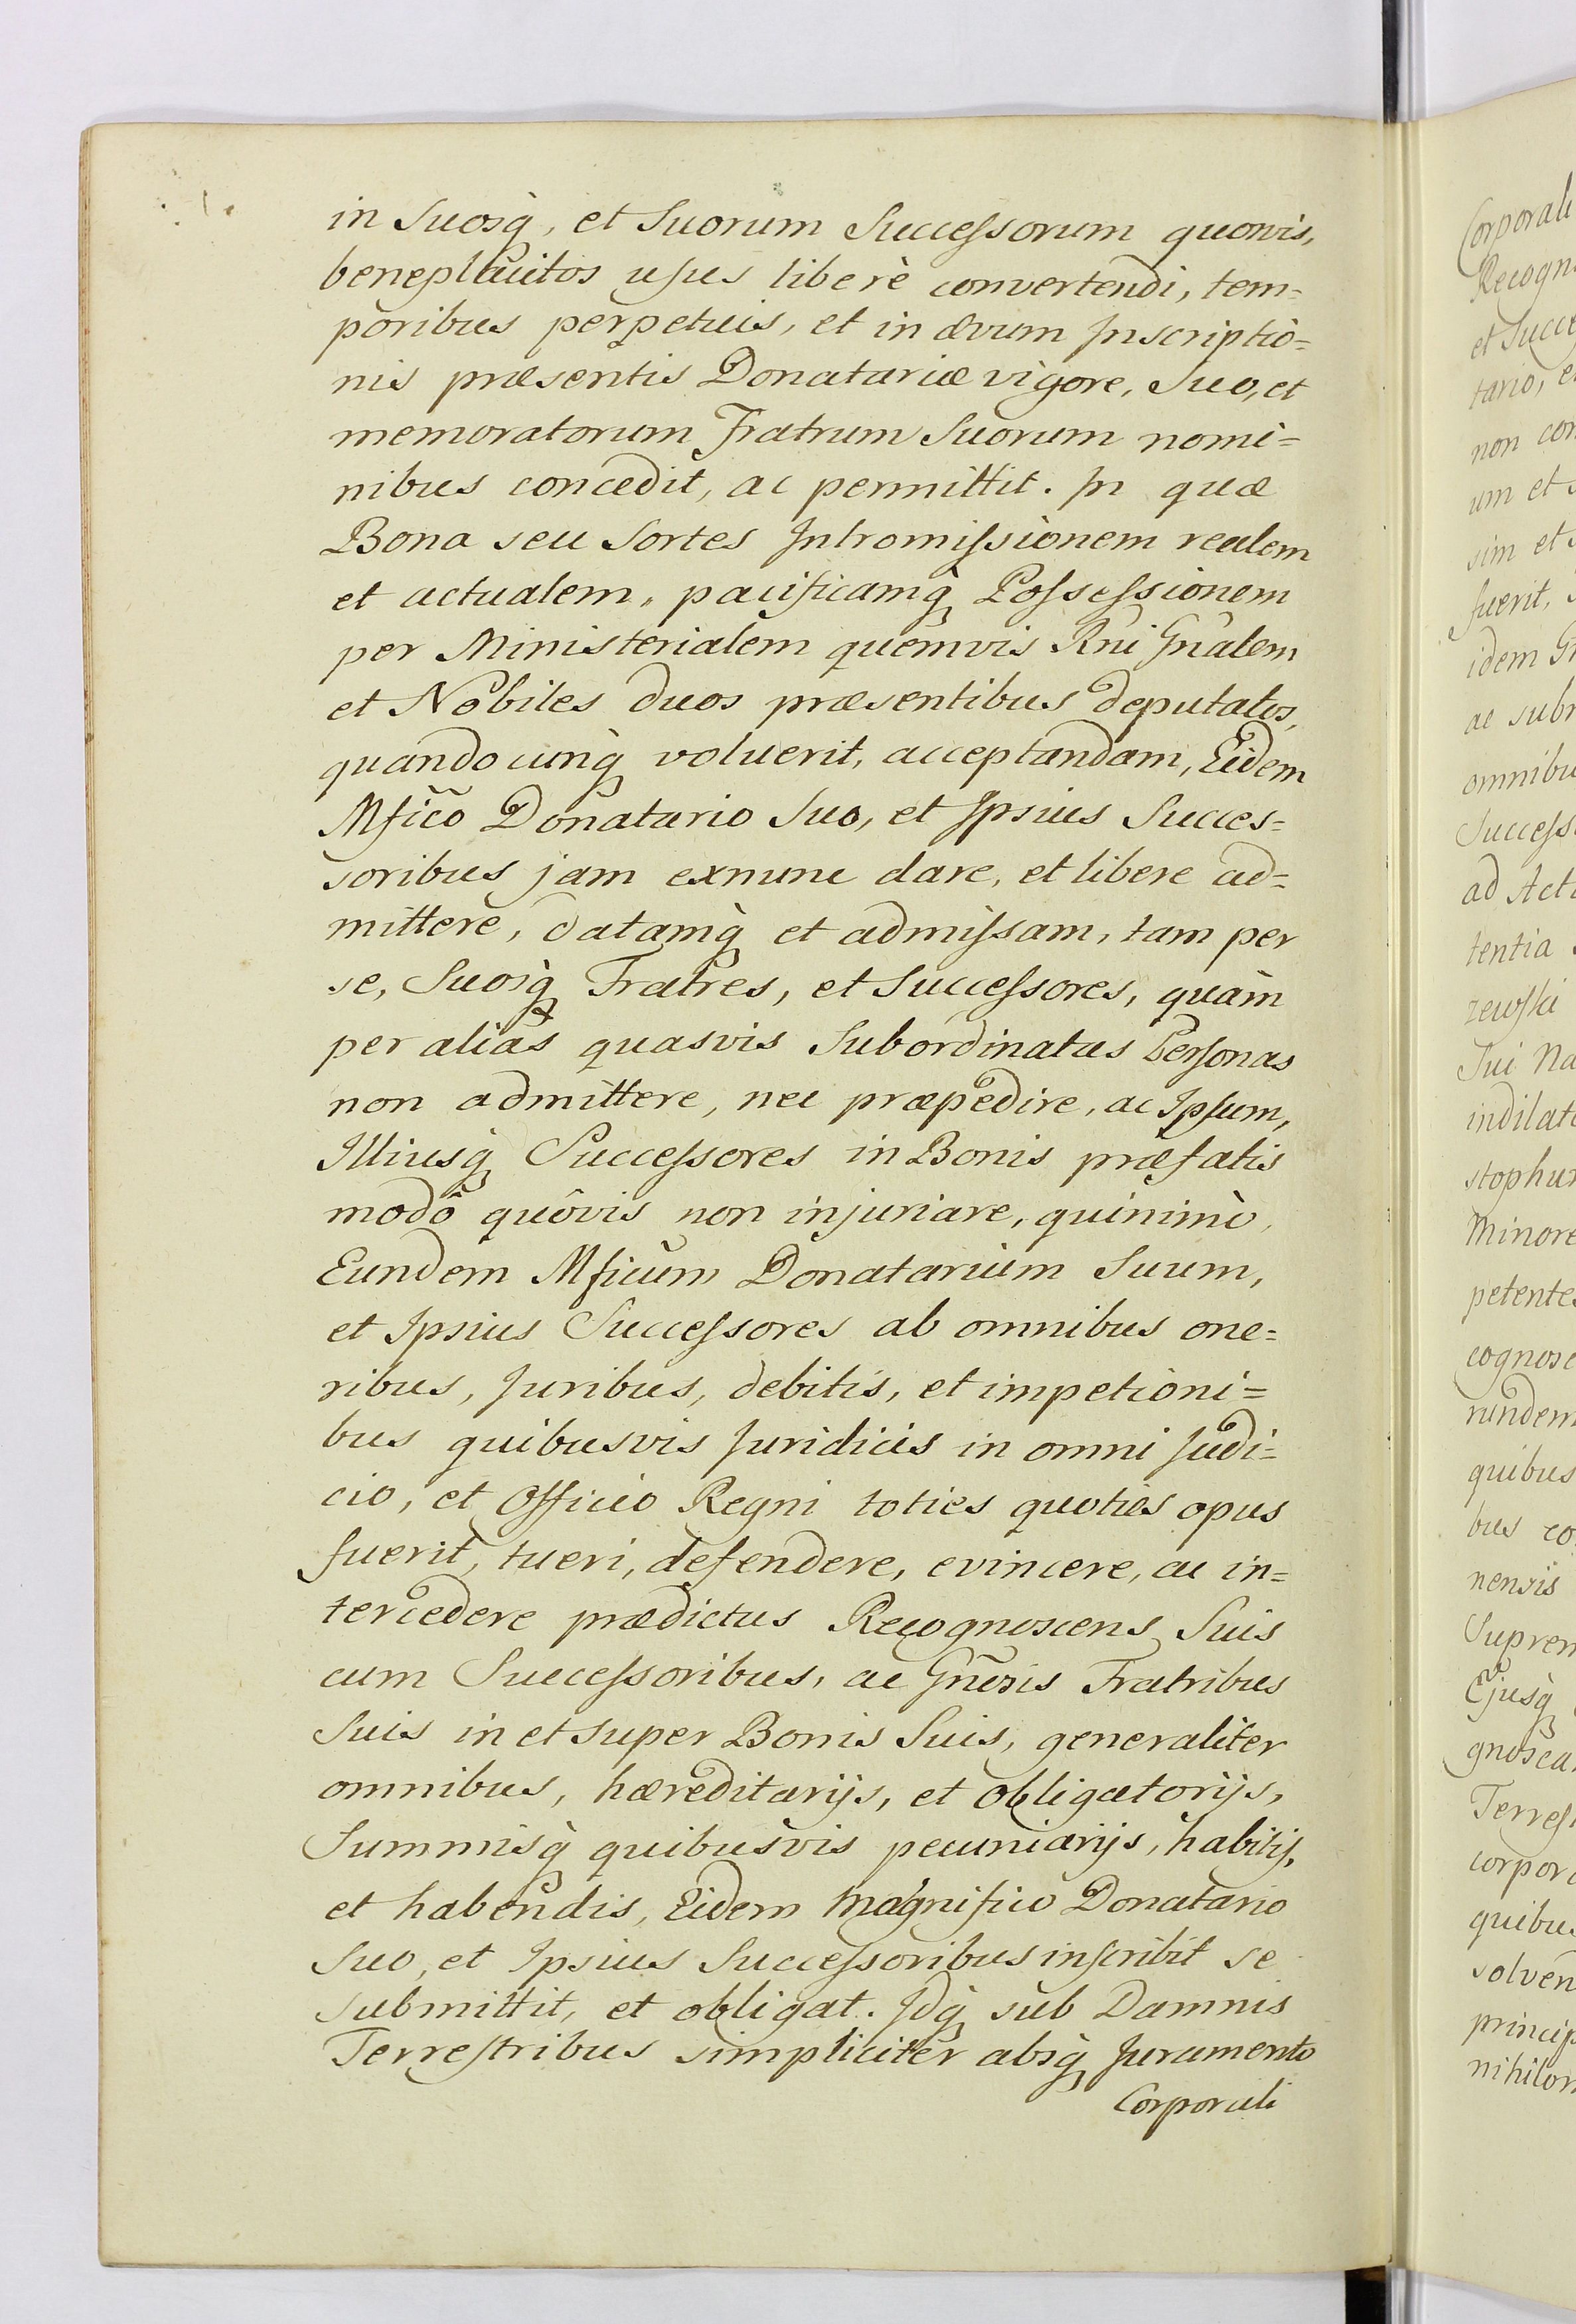 in Suosq̀, et Suorum Succeſsorum quovis,
beneplacitos uſus liberè convertendi, tem=
poribus perpetuis, et in ævum Inscriptio=
nis præsentis Donatariæ vigore, Suo, et
memoratorum Fratrum Suorum nomi=
nibus concedit, ac permittit. In quæ
Bona seu Sortes Intromiſsionem realem
et actualem, pacificamq̀ Poſseſsionem
per Ministerialem quemvis Rñi Gñalem
et Nobiles duos præsentibus deputatos,
quandocunq̀ voluerit, acceptandam, Eidem
Mfico Donatario Suo, et Ipsius Succes=
soribus jam exnunc dare, et libere ad=
mittere, datamq̀ et admiſsam, tam per
se, Suosq̀ Fratres, et Succeſsores, quàm
per alias quasvis Subordinatas Perſonas
non admittere, nec præpedire, ac Ipſum,
Illiusq̀ Succeſsores in Bonis præfatis
modô quôvis non injuriare, quinimò,
Eundem Mficum Donatarium Suum,
et Ipsius Succeſsores ab omnibus one=
ribus, Juribus, debitis, et impetioni=
bus quibusvis Juridicis in omni Judi=
cio, et Officio Regni toties quoties opus
fuerit, tueri, defendere, evincere, ac in=
tercedere prædictus Recognoscens Suis
cum Succeſsoribus, ac Gñosis Fratribus
Suis in et super Bonis Suis, generaliter
omnibus, hæreditarijs, et obligatorijs,
Summisq̀ quibusvis pecuniarijs, habitis,
et habendis, Eidem Magnifico Donatario
Suo, et Ipsius Succeſsoribus inſcribit se
submittit, et obligat. Idq̀ sub Damnis
Terreſtribus simpliciter absq̀ Juramento
Corporali
Corporali
et Succe
tario, e
non con
um et
sim et
fuerit,
idem G
ac sub
omnibu
Succeſs
ad Act
tentia
zewſki
Sui Na
indilat
stophu
Minore
petentes
cognosc
rundem
quibus
bus co
nensis
Suprem
Ejusq̀
gnosca
Terreſ
corpor
quibus
solven
princip
nihilom